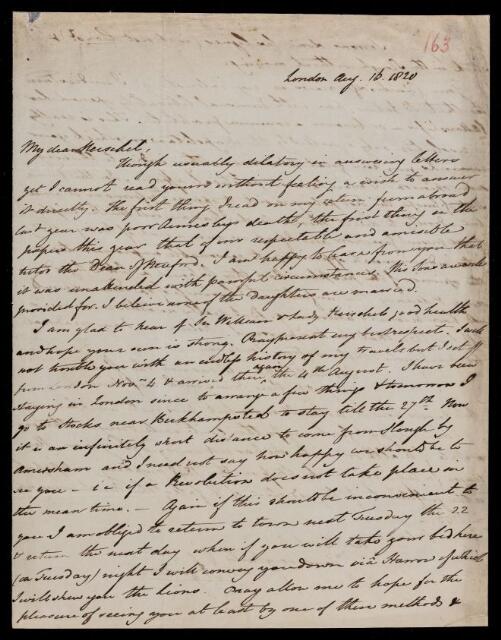 163
London Aug. 16. 1820
My dear Herschel,
Though usually dilatory in answering letters
yet I cannot read yours without feeling a wish to answer
it directly. The first thing I read on my return from abroad
last year was poor death, the first thing in the
papers this year that of our respectable and amiable
tutor the Dean of I am happy to hear from you that
it was unattended with painful circumstances. His are
provided for. I believe none of the daughters are married.
I am glad to hear of Sir William & Lady Herschel's good health
and hope your own is strong. Pray present my best respects. I will
not trouble you with an history of my travels but I set off
from London Nov. 4 & arrived there again the 4th August. I have been
staying in London since to arrange a few things & tomorrow I
go to Stocks near Berkhampstead to stay till the 27th. Now
it is an infinitely short distance to come from Slough by
Amersham and I need not say how happy we should be to
see you – i.e. if a Revolution does not take place in
the mean time. – Again if this should be inconvenient to
you I am obliged to return to town next Tuesday the 22
& return the next day when if you will take your bed here
(on Tuesday) night I will convey you down via Harrow of which
I will shew you the lions. Pray allow me to hope for the
pleasure of seeing you at least by one of these methods &